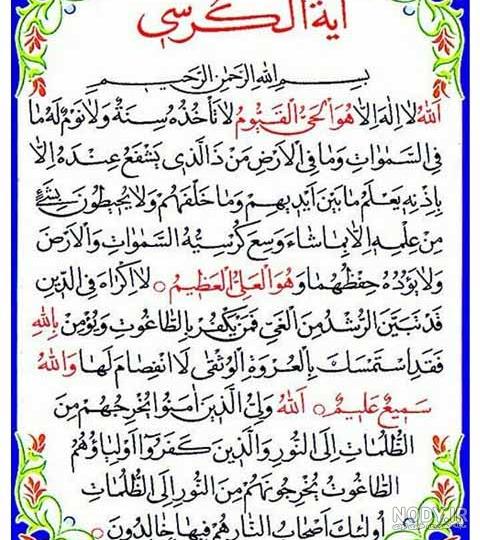 آیة الکرسی
بِسْمِ اللهِ الرَّحْمٰنِ الرَّحیمِ
اَللهُ لا اِلٰهَ اِلاّ هُوَ الْحَیُّ الْقَیُّومُ لا تَأْخُذُهُ سِنَةٌ وَ لا نَوْمٌ لَهُ ما
فِی السَّمٰوٰاتِ وَ ما فِی الْاَرْضِ مَنْ ذَا الَّذی یَشْفَعُ عِنْدَهُ اِلاّ
بِاِذْنِهِ یَعْلَمُ ما بَیْنَ اَیْدیهِمْ وَ ما خَلْفَهُمْ وَ لا یُحیطُونَ بِشَیْءٍ
مِنْ عِلْمِهِ اِلاّ بِما شاءَ وَسِعَ کُرْسِیُّهُ السَّمٰوٰاتِ وَ الْاَرْضَ
وَ لا یَؤُدُهُ حِفْظُهُما وَ هُوَ الْعَلِیُّ الْعَظیمُ ○ لا اِکْراهَ فِی الدّینِ
قَدْ تَبَیَّنَ الرُّشْدُ مِنَ الْغَیِّ فَمَنْ یَکْفُرْ بِالطّاغُوتِ وَ یُؤْمِنْ بِاللهِ
فَقَدِ اسْتَمْسَکَ بِالْعُرْوَةِ الْوُثْقیٰ لَا انْفِصامَ لَها وَ اللهُ
سَمیعٌ عَلیمٌ ○ اَللهُ وَلِیُّ الَّذینَ اٰمَنُوا یُخْرِجُهُمْ مِنَ
الظُّلُماتِ اِلَی النُّورِ وَ الَّذینَ کَفَرُوا اَوْلِیاؤُهُمُ
الطّاغُوتُ یُخْرِجُونَهُمْ مِنَ النُّورِ اِلَی الظُّلُماتِ
اُولٰئِکَ اَصْحابُ النّارِ هُمْ فیها خالِدُونَ ○
NODY.IR